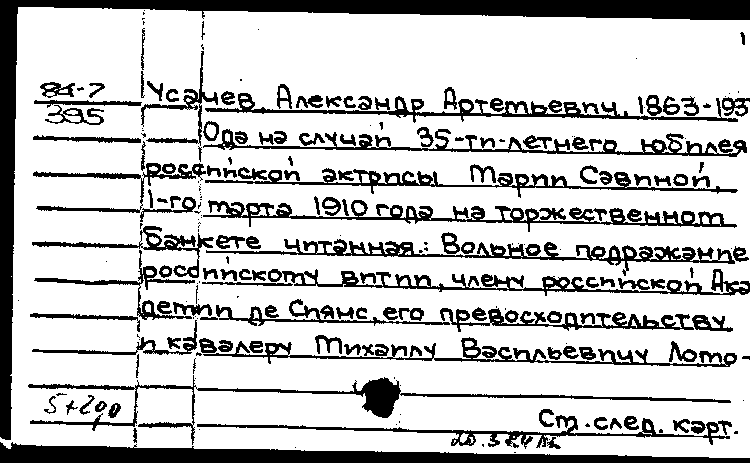 1
84-7 Усачев, Александр Артемьевич, 1863-193
395 Ода на случай 35-ти-летнего юбилея
российской актрисы Марии Савиной,
1-го марта 1910 года на торжественном
банкете читанная.: Вольное подражание
российскому витии, члену российской Ака
демии де Сиянс, его превосходительству
и кавалеру Михаилу Васильевичу Ломо-
См. след. карт.